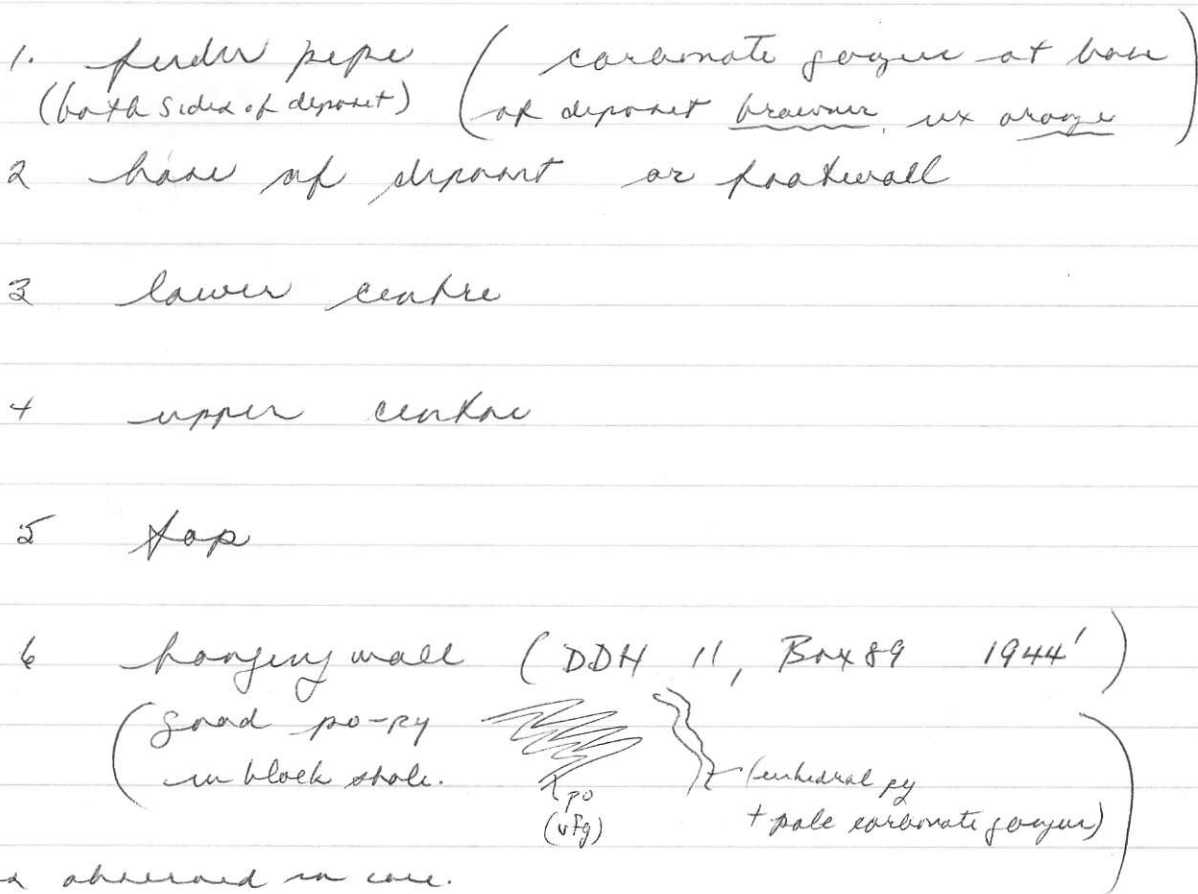 1. feeder pipe (carbonate gangue at base
(both sides of deposit) of deposit browner, ex orange)
2 base of deposit or footwall
3 lower centre
4 upper centre
5 top
6 hanging wall (DDH 11, Box 89 1944')
(good po-py
in black shale.
po
(vfg)
(euhedral py
+ pale carbonate gangue)
observed in core.